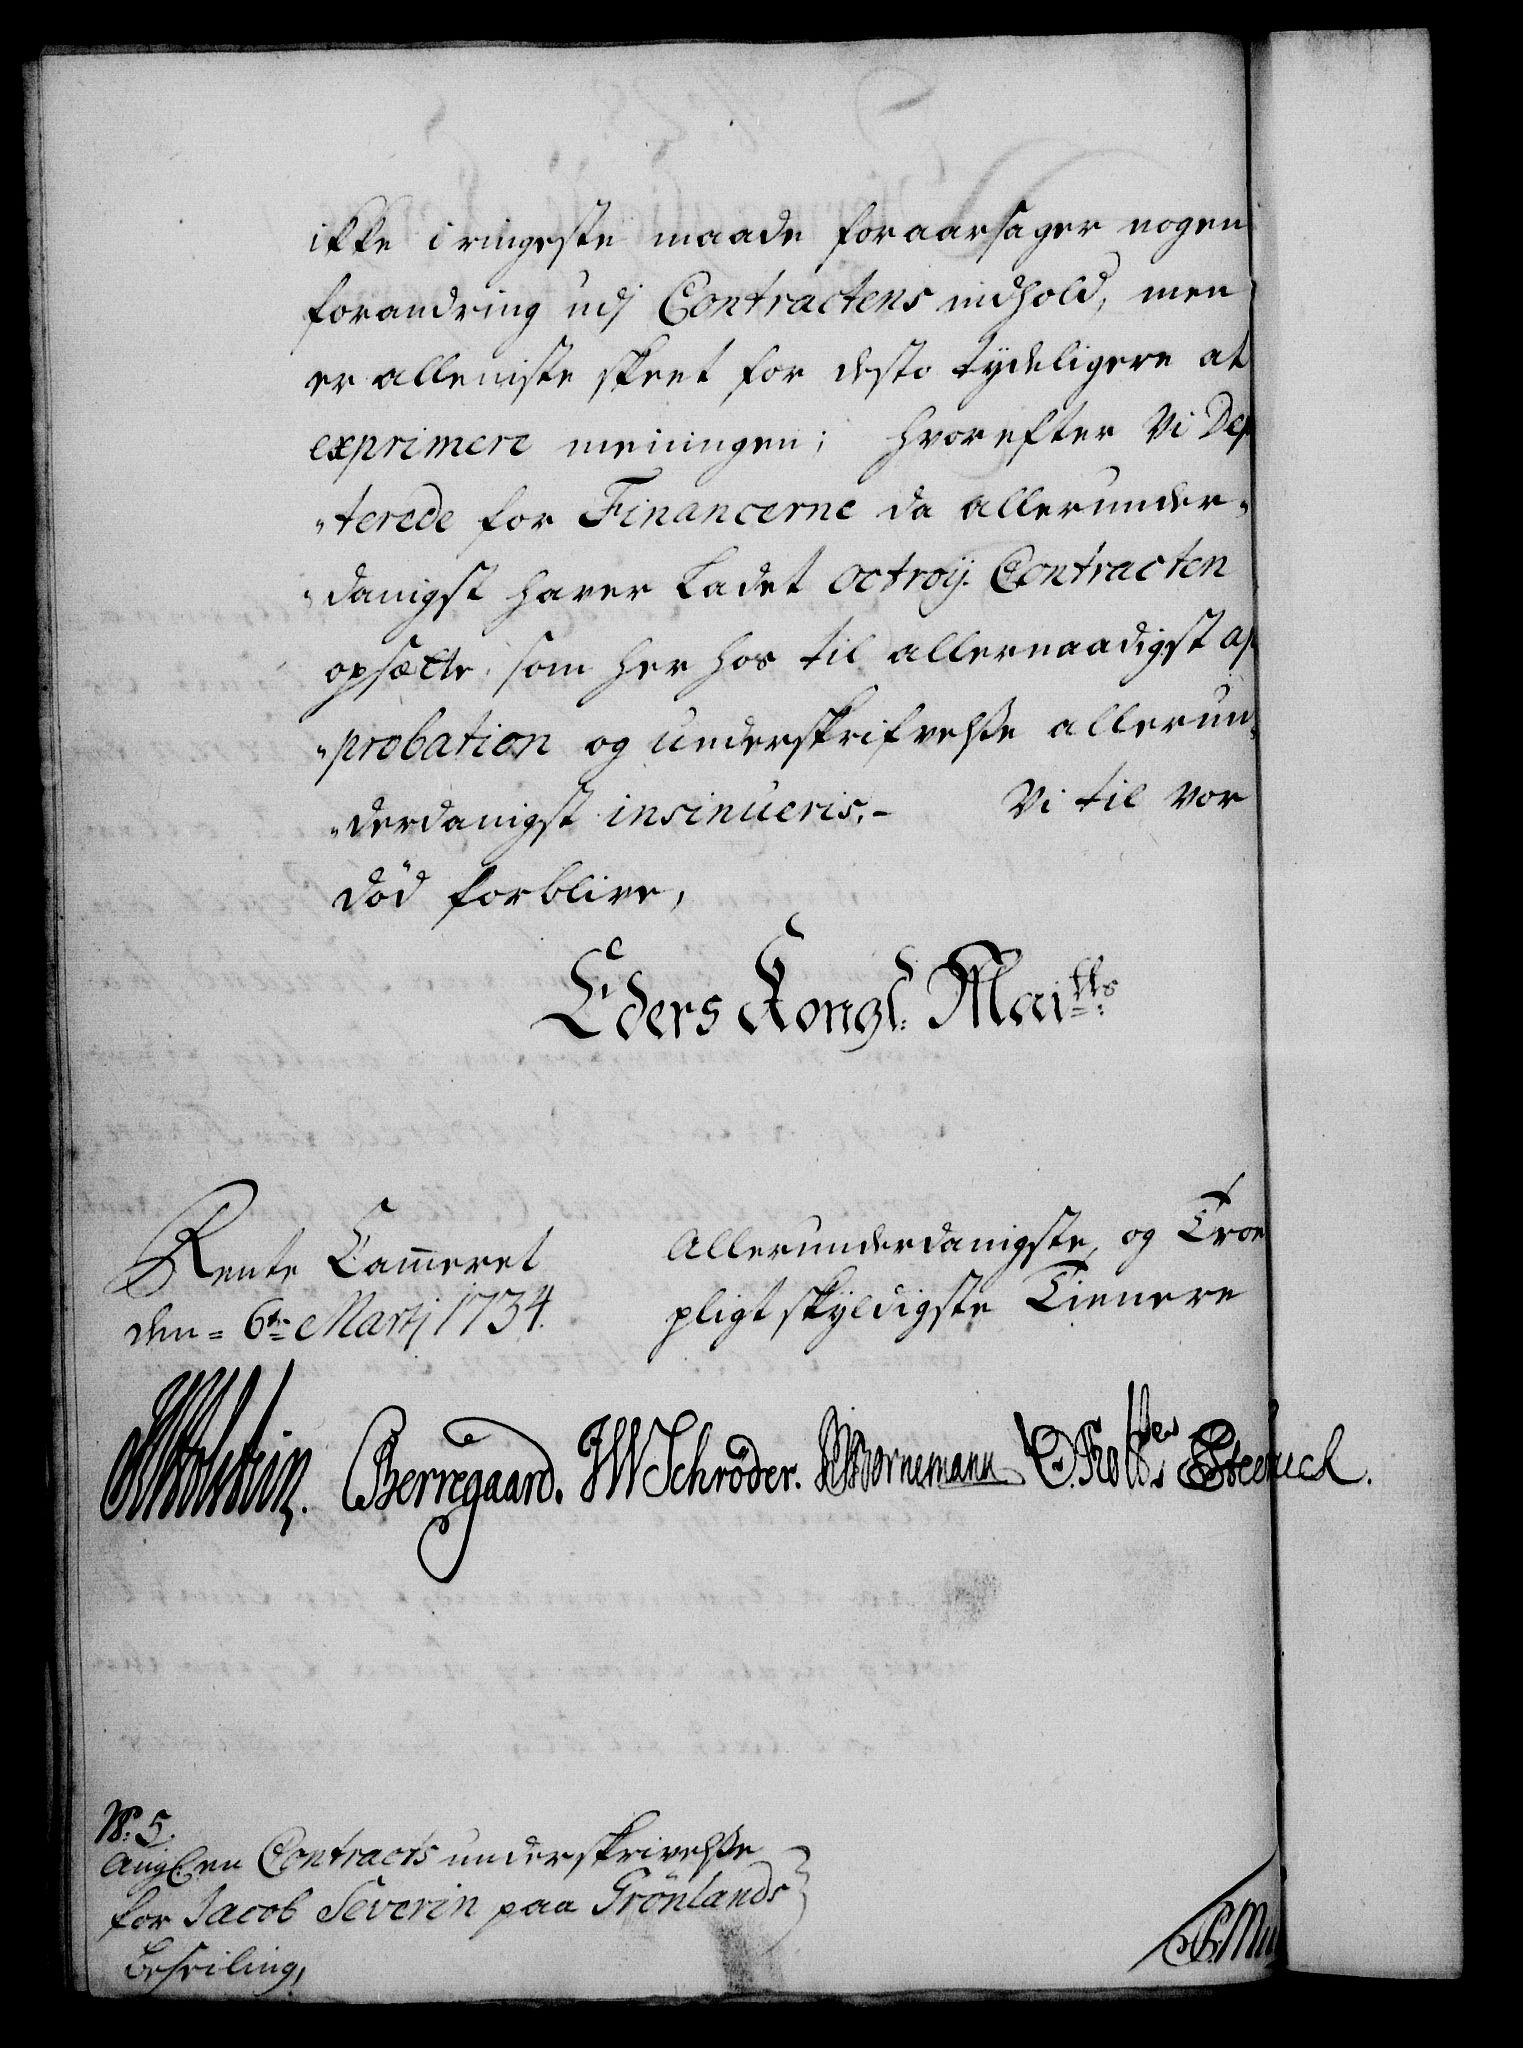 ikke i ringeste maade foraarsager nogen
forandring udj Contractens indhold, men
er alleeniste skeet for desto tydeligere at
exprimere meiningen; hvorefter Vi Dep
terede for Financerne da allerunder
danigst haver ladet octroÿ Contracten
opsætte, som her hos til allernaadigst ap
probation og underskrifvelsse allerun
derdanigst insinueris,
Vi til vor
død forblive,
Eders Kongl: Maitts:
Rente Cammeret
den 6te Martj 1734.
Allerunderdanigste og Troe
pligtskyldigste Tienere
Holstein. CBerregaard. JWSchrøder. Bornemann Steensen.
No: 5.
Angl: en Contracts underskrivelsse
for Jacob Severin paa Grönlands
Besseiling,